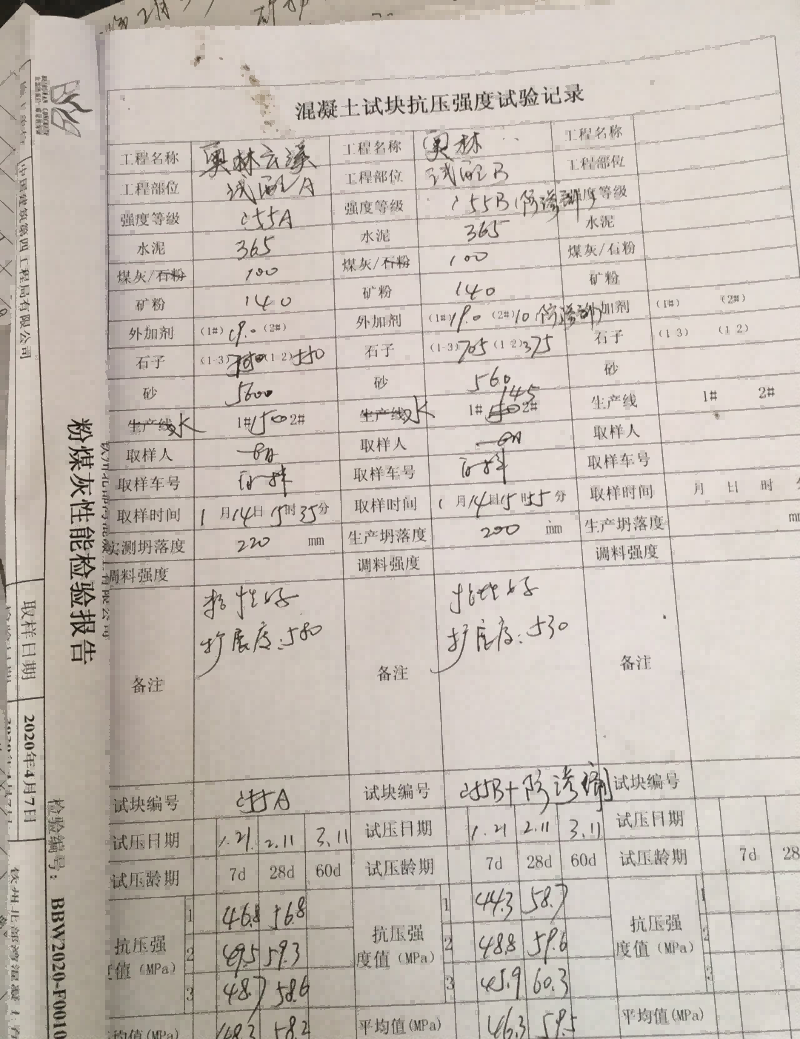 混凝土试块抗压强度试验记录
工程名称 奥林云溪 工程名称 奥林 工程名称
工程部位 试配A 工程部位 试配B 工程部位
强度等级 C55A 强度等级 C55B(防渗剂) 强度等级
水泥 365 水泥 365 水泥
煤灰/石粉 100 煤灰/石粉 100 煤灰/石粉
矿粉 140 矿粉 140 矿粉
外加剂 (1#) 19.0 (2#) 外加剂 (1#)19.0 (2#)10防渗剂 外加剂 (1#) (2#)
石子 (1-3) (1-2)350 石子 (1-3)705 (1-2)375 石子 (1-3) (1-2)
砂 砂 560 砂
生产线水 1#150 2# 生产线水 1# 145 2# 生产线 1# 2#
取样人 取样人 取样人
取样车号 取样车号 取样车号
取样时间 1月14日15时35分 取样时间 1月14日15时55分 取样时间 月 日 时
实测坍落度 220 mm 生产坍落度 200 mm 生产坍落度 mm
调料强度 调料强度 调料强度
备注 粘性好 备注 粘性好 备注
扩展度:580 扩展度:530
试块编号 C55A 试块编号 C55B+防渗剂 试块编号
试压日期 1.21 2.11 3.11 试压日期 1.21 2.11 3.11 试压日期
试压龄期 7d 28d 60d 试压龄期 7d 28d 60d 试压龄期 7d 28
抗压强度值(MPa) 1 46.8 56.8 抗压强度值(MPa) 1 44.3 58.7 抗压强度值(MPa) 1
2 49.5 59.3 2 48.8 59.6 2
3 48.7 58.6 3 45.9 60.3 3
平均值(MPa) 48.3 58.2 平均值(MPa) 46.3 59.5 平均值(MPa)
中国建筑第四工程局有限公司
粉煤灰性能检验报告
取样日期 2020年4月7日
检验编号: BBW2020-F0010